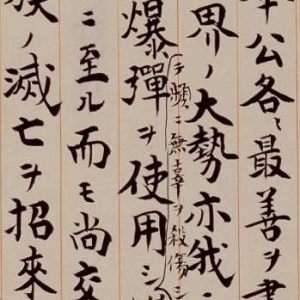 奉公各〻最善ヲ盡
界ノ大勢亦我
テ頻ニ無辜ヲ殺傷シ
爆彈ヲ使用シ
ニ至ル而モ尚交
族ノ滅亡ヲ招來